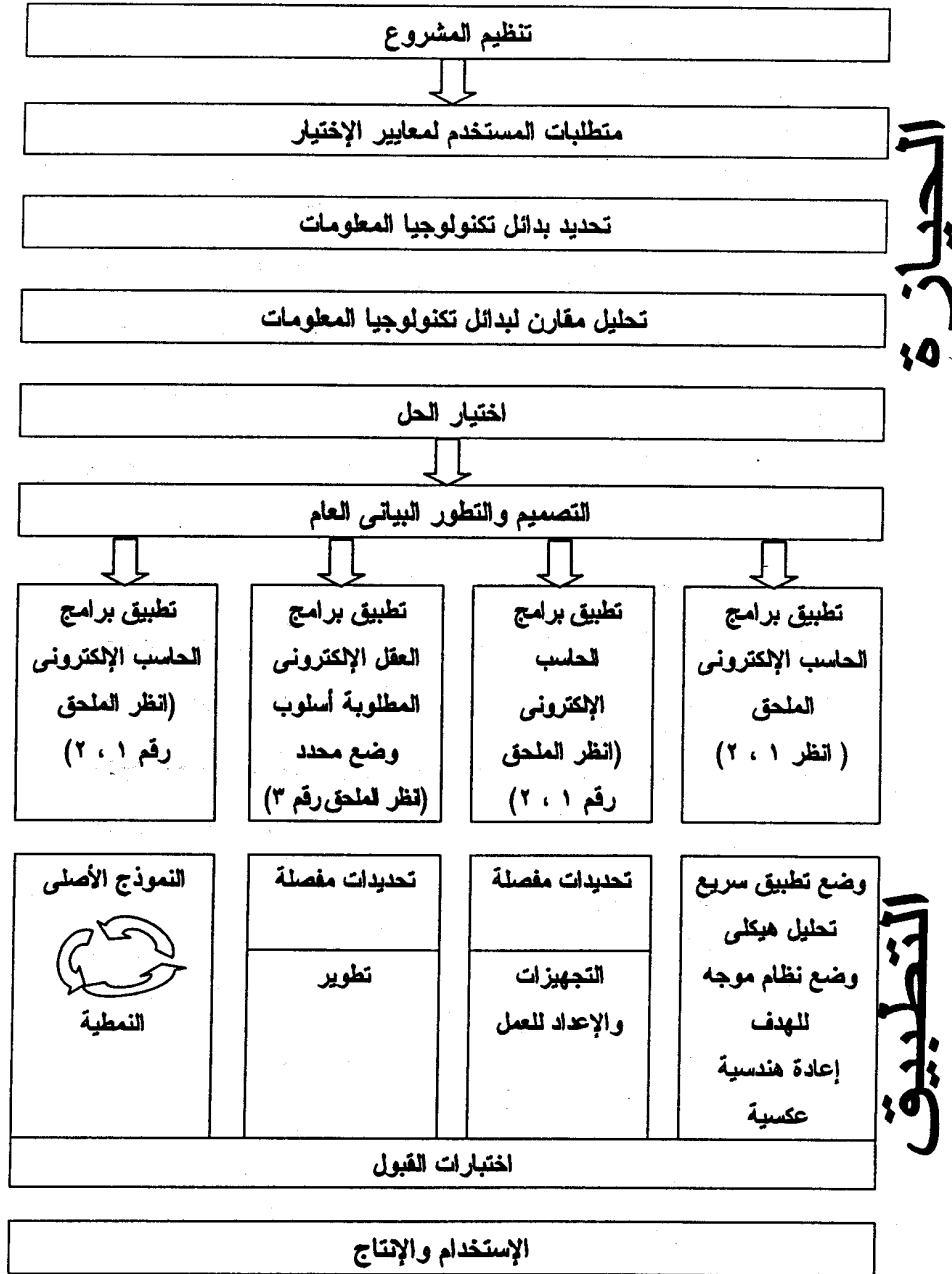 تنظيم المشروع
متطلبات المستخدم لمعايير الإختيار
تحديد بدائل تكنولوجيا المعلومات
تحليل مقارن لبدائل تكنولوجيا المعلومات
اختيار الحل
الحيازة
التصميم والتطور البيانى العام
تطبيق برامج
الحاسب الإلكترونى
الملحق
( انظر ١ ، ٢)
تطبيق برامج
الحاسب
الإلكترونى
(انظر الملحق
رقم ١ ، ٢)
تطبيق برامج
العقل الإلكترونى
المطلوبة أسلوب
وضع محدد
(انظر الملحق رقم ٣)
تطبيق برامج
الحاسب الإلكترونى
(انظر الملحق
رقم ١ ، ٢)
التطبيق
وضع تطبيق سريع
تحليل هيكلى
وضع نظام موجه
للهدف
إعادة هندسية
عكسية
تحديدات مفصلة
التجهيزات
والإعداد للعمل
تحديدات مفصلة
تطوير
النموذج الأصلى
النمطية
اختبارات القبول
الإستخدام والإنتاج